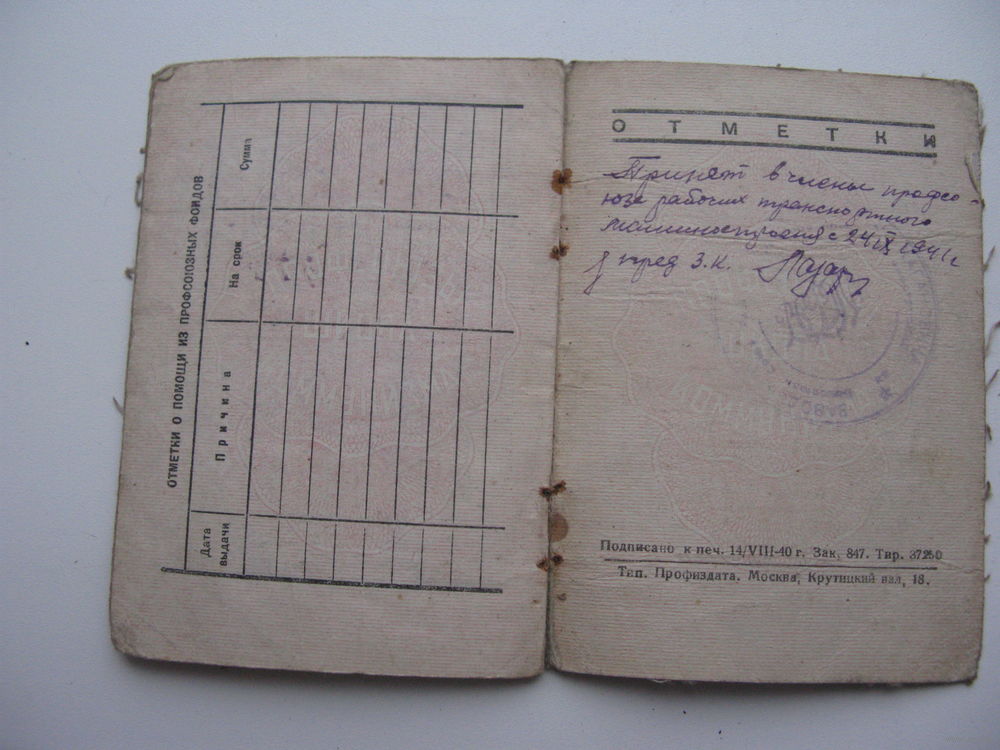 ОТМЕТКИ О ПОМОЩИ ИЗ ПРОФСОЮЗНЫХ ФОНДОВ
Дата выдачи
Причина
На срок
Сумма
ОТМЕТКИ
Принят в члены профсо-
юза рабочих транспортного
машиностроения с 24 IX 1941 г
пред З.К.
Подписано к печ. 14/VIII-40 г. Зак. 847. Тир. 37250
Тип. Профиздата. Москва, Крутицкий вал, 18.